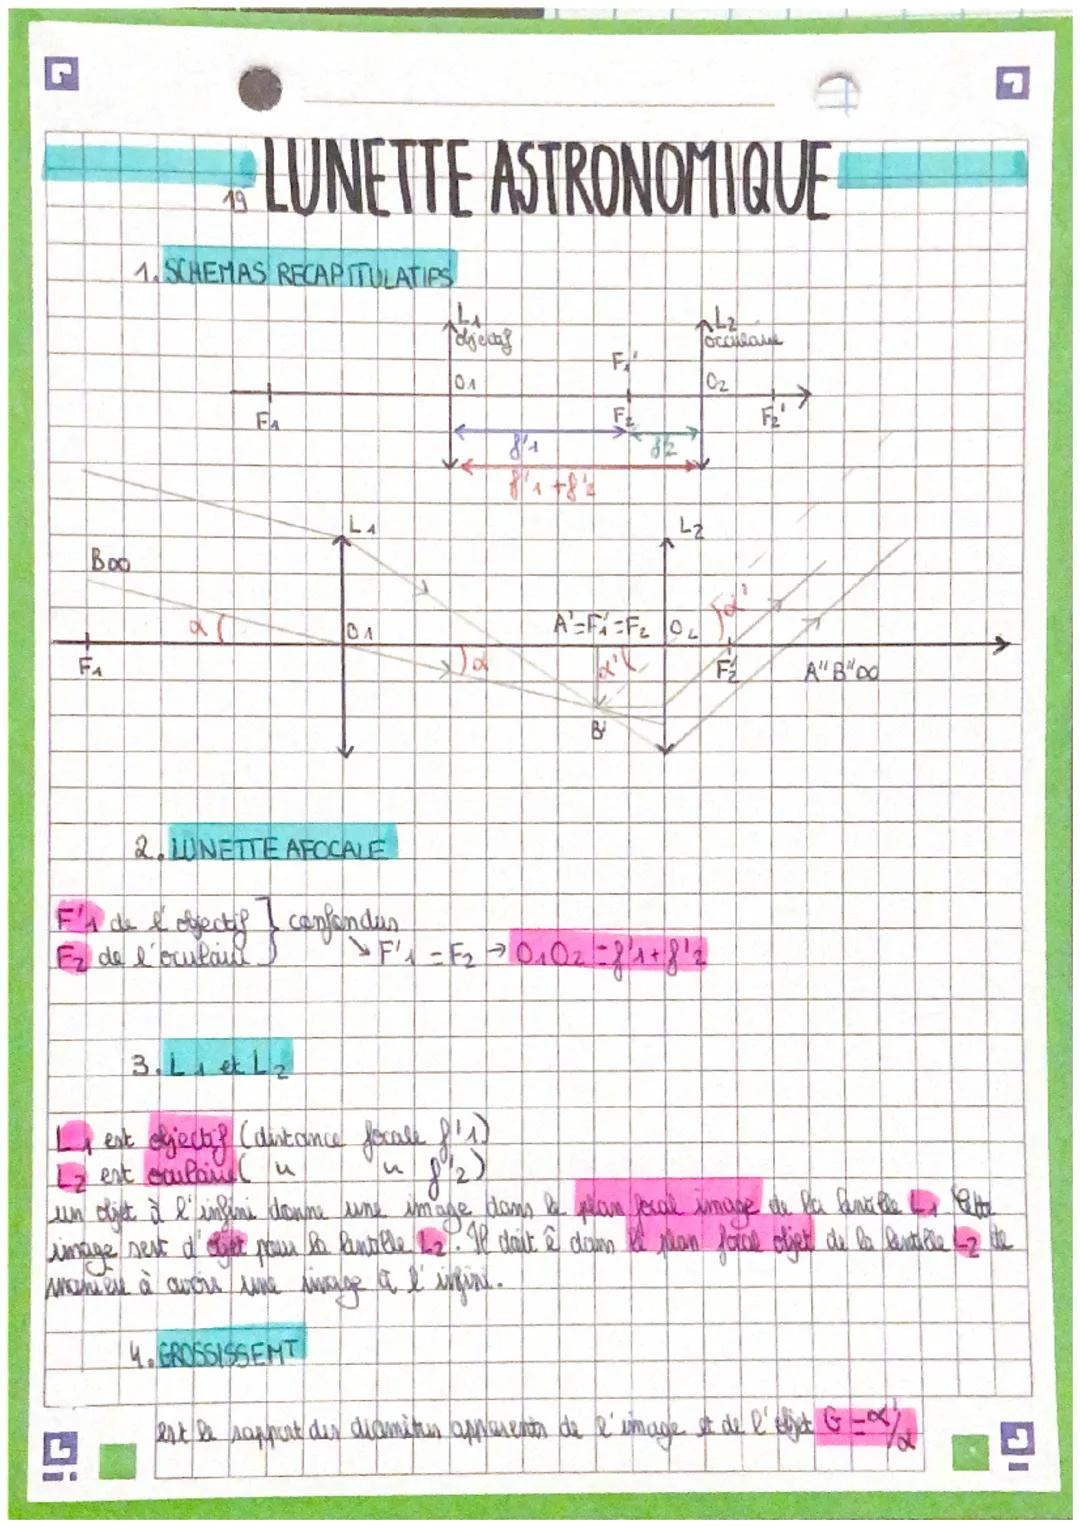 19 LUNETTE ASTRONOMIQUE
1. SCHEMAS RECAPITULATIFS
L1 objectif
L2 occulaire
F1'
O1
O2
F1
F2
F2'
f'1
f'2
f'1 + f'2
L1
L2
B∞
α
O1
A'=F1'=F2
O2
α'
F1
α
α'
F2'
A"B"∞
B'
2. LUNETTE AFOCALE
F'1 de l'objectif } confondus
F2 de l'oculaire
↘ F'1 = F2 → O1O2 = f'1 + f'2
3. L1 et L2
L1 est objectif (distance focale f'1)
L2 est oculaire ( " " f'2)
un objet à l'infini donne une image dans le plan focal image de la lentille L1. Cette
image sert d'objet pour la lentille L2. Il doit ê dans le plan focal objet de la lentille L2 de
manière à avoir une image à l'infini.
4. GROSSISSEMT
est le rapport des diamètres apparents de l'image et de l'objet G = α'/α